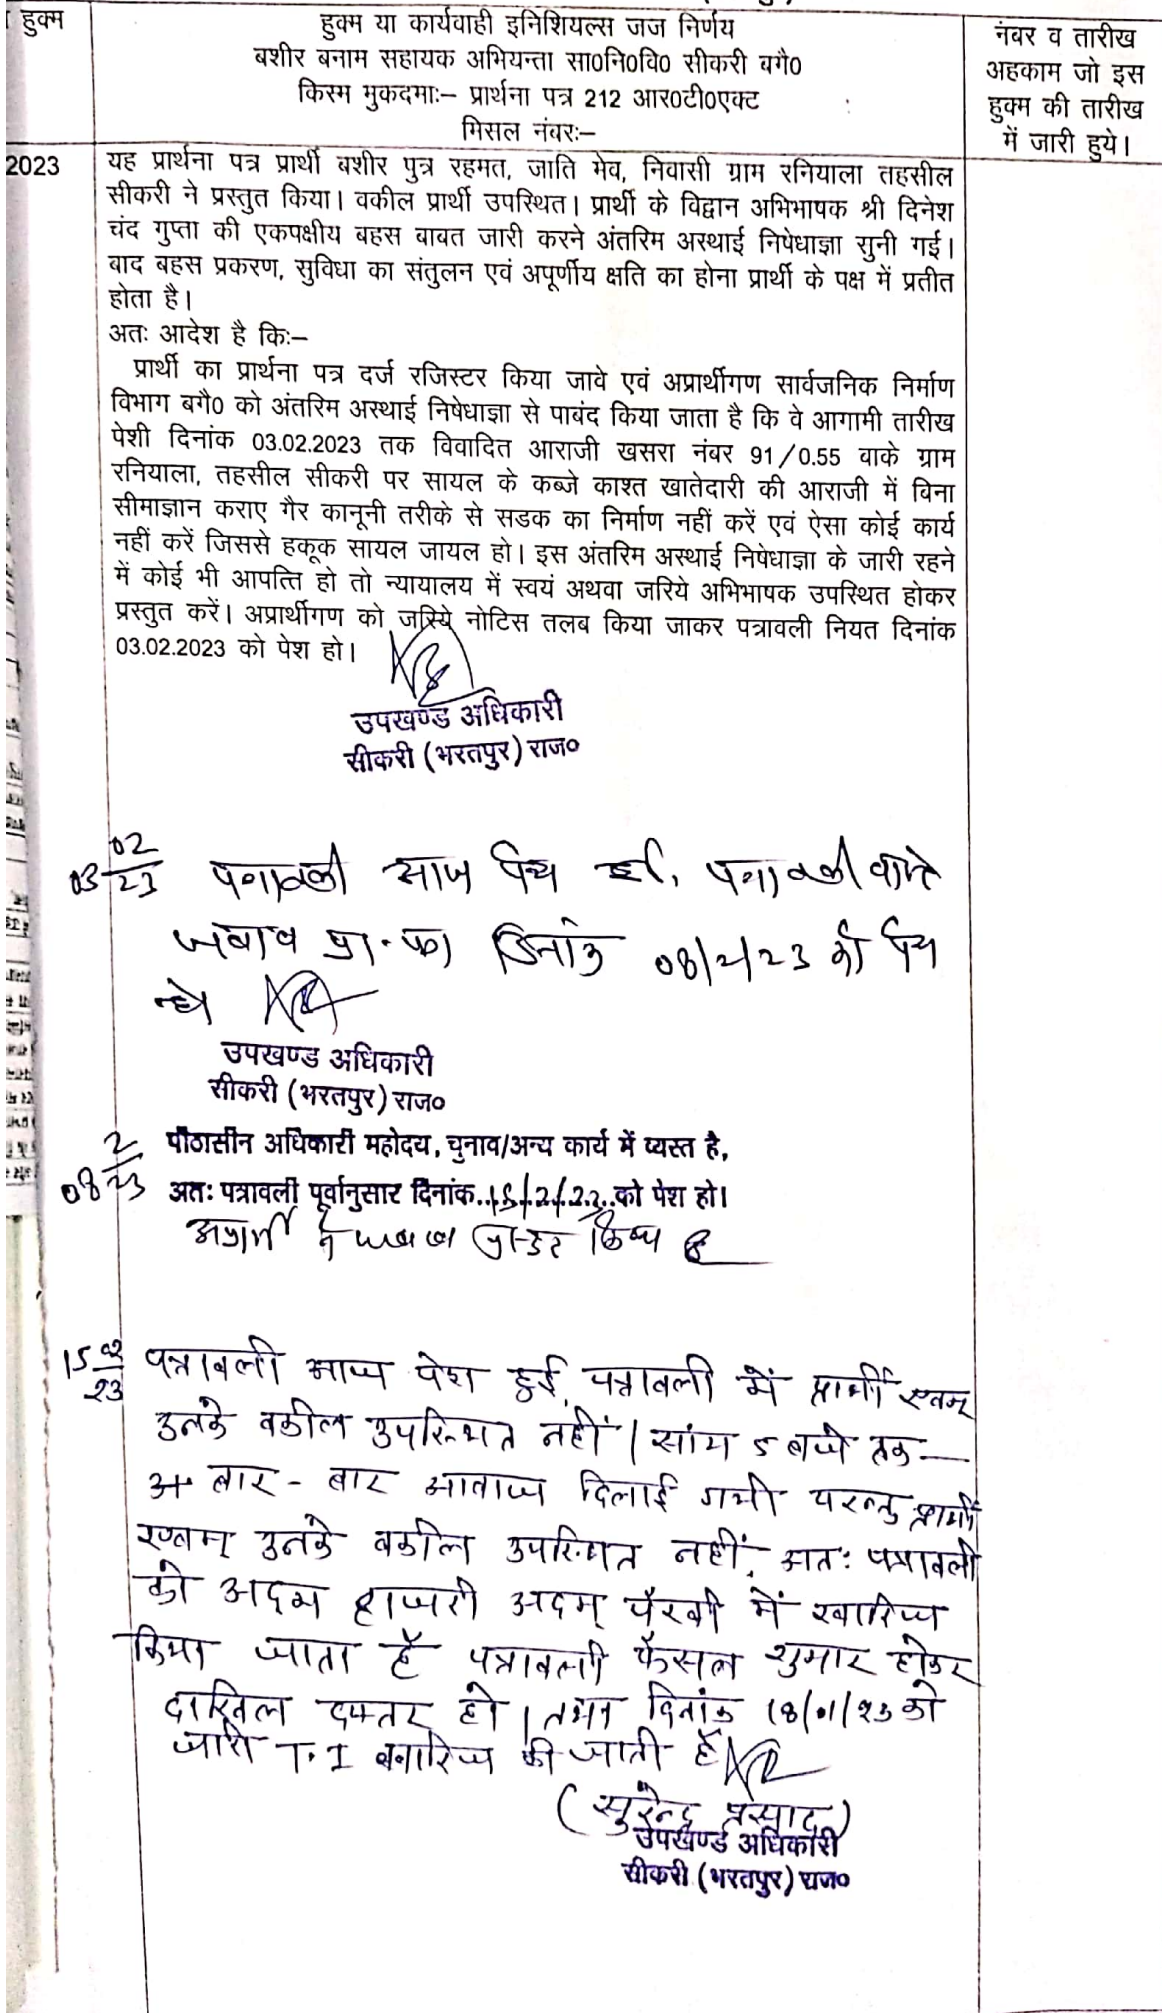 हुक्म
हुक्म या कार्यवाही इनिशियल्स जज निर्णय
बशीर बनाम सहायक अभियन्ता सा0नि0वि0 सीकरी बगै0
किस्म मुकदमाः– प्रार्थना पत्र 212 आर0टी0एक्ट
मिसल नंबरः–
नंबर व तारीख
अहकाम जो इस
हुक्म की तारीख
में जारी हुये।
2023
यह प्रार्थना पत्र प्रार्थी बशीर पुत्र रहमत, जाति मेव, निवासी ग्राम रनियाला तहसील
सीकरी ने प्रस्तुत किया। वकील प्रार्थी उपस्थित। प्रार्थी के विद्वान अभिभाषक श्री दिनेश
चंद गुप्ता की एकपक्षीय बहस बाबत जारी करने अंतरिम अस्थाई निषेधाज्ञा सुनी गई।
बाद बहस प्रकरण, सुविधा का संतुलन एवं अपूर्णीय क्षति का होना प्रार्थी के पक्ष में प्रतीत
होता है।
अतः आदेश है किः–
प्रार्थी का प्रार्थना पत्र दर्ज रजिस्टर किया जावे एवं अप्रार्थीगण सार्वजनिक निर्माण
विभाग बगै0 को अंतरिम अस्थाई निषेधाज्ञा से पाबंद किया जाता है कि वे आगामी तारीख
पेशी दिनांक 03.02.2023 तक विवादित आराजी खसरा नंबर 91/0.55 वाके ग्राम
रनियाला, तहसील सीकरी पर सायल के कब्जे काश्त खातेदारी की आराजी में बिना
सीमाज्ञान कराए गैर कानूनी तरीके से सडक का निर्माण नहीं करें एवं ऐसा कोई कार्य
नहीं करें जिससे हकूक सायल जायल हो। इस अंतरिम अस्थाई निषेधाज्ञा के जारी रहने
में कोई भी आपत्ति हो तो न्यायालय में स्वयं अथवा जरिये अभिभाषक उपस्थित होकर
प्रस्तुत करें। अप्रार्थीगण को जरिये नोटिस तलब किया जाकर पत्रावली नियत दिनांक
03.02.2023 को पेश हो।
उपखण्ड अधिकारी
सीकरी (भरतपुर) राज०
03 02/23 पत्रावली आज पेश हुई, पत्रावली वास्ते
जवाब प्रा. पत्र दिनांक 08/2/23 को पेश
हो
उपखण्ड अधिकारी
सीकरी (भरतपुर) राज०
08 2/23 पीठासीन अधिकारी महोदय, चुनाव/अन्य कार्य में व्यस्त है,
अतः पत्रावली पूर्वानुसार दिनांक..15/2/23..को पेश हो।
अप्रार्थी ने जवाब किया
15 02/23 पत्रावली आज पेश हुई, पत्रावली में प्रार्थी एवम्
उनके वकील उपस्थित नहीं। सांय 5 बजे तक
बार - बार आवाज दिलाई गयी परन्तु प्रार्थी
एवम् उनके वकील उपस्थित नहीं, अतः पत्रावली
को अदम हाजरी अदम् पैरवी में खारिज
किया जाता है पत्रावली फैसल शुमार होकर
दाखिल दफ्तर हो। दिनांक 18/01/23 को
जारी T.I खारिज की जाती है
(सुरेन्द्र प्रसाद)
उपखण्ड अधिकारी
सीकरी (भरतपुर) राज०